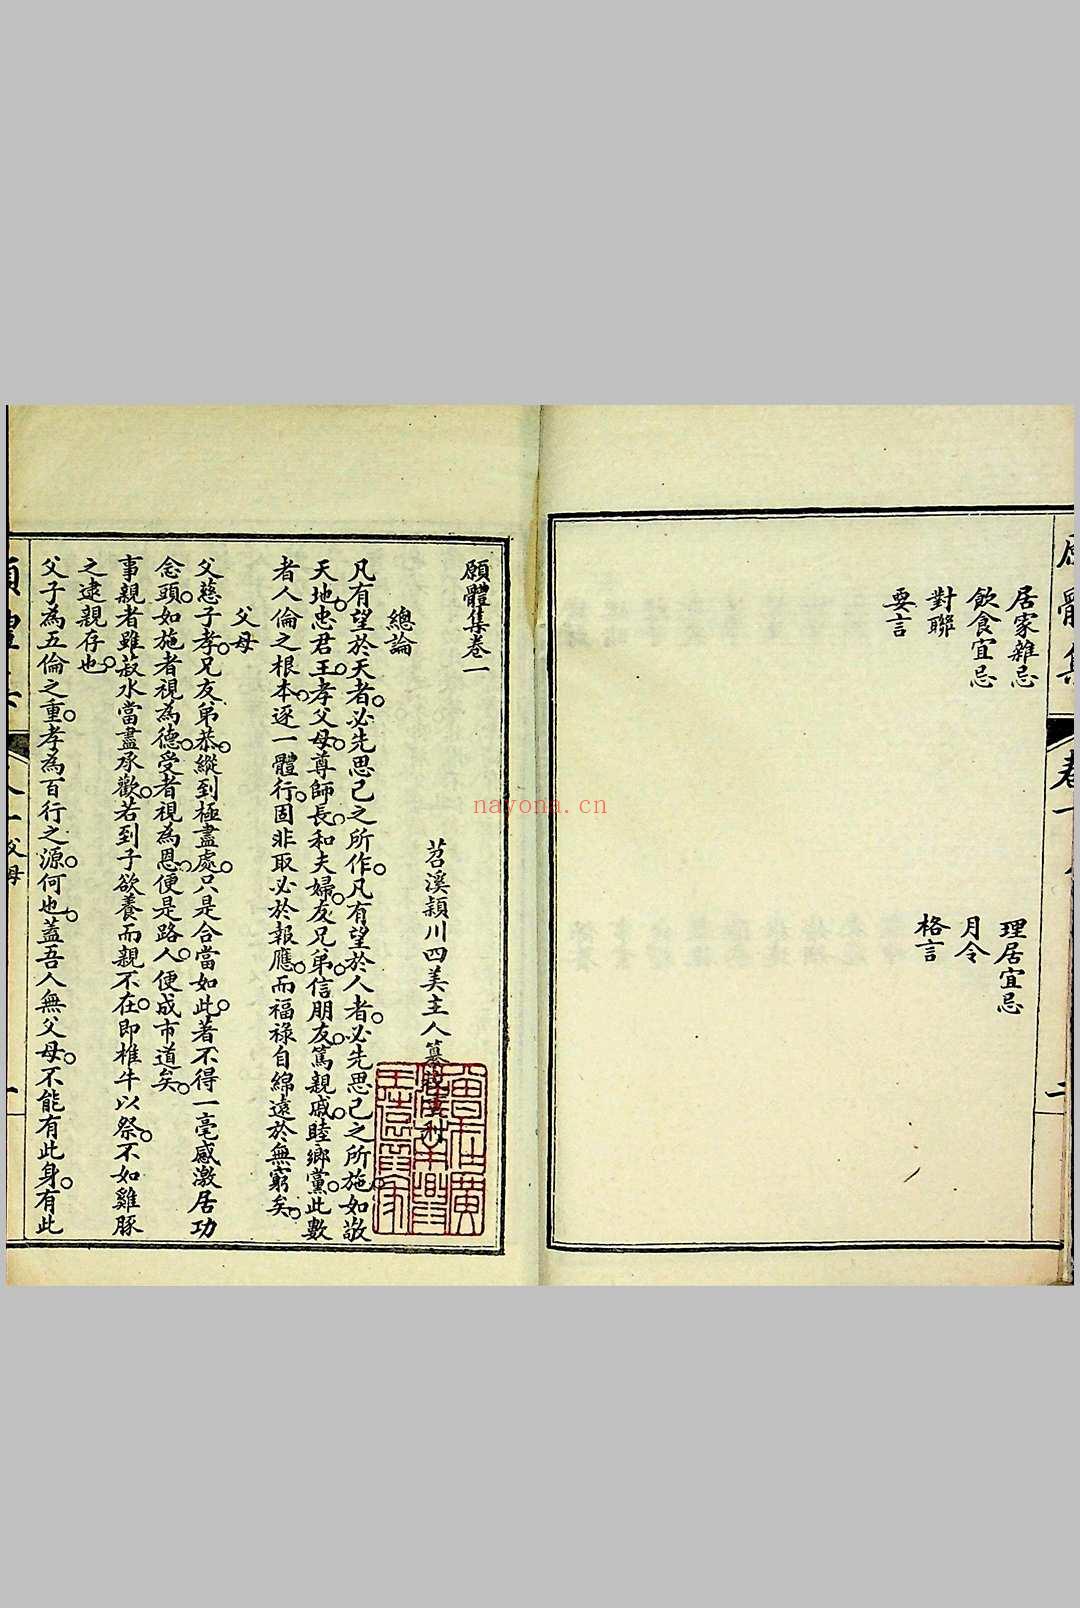 居家雜忌
理居宜忌
飲食宜忌
月令
對聯
格言
要言
願體集卷一
苕溪潁川四美主人纂
總論
凡有望於天者必先思己之所作凡有望於人者必先思己之所施如敬
天地忠君王孝父母尊師長和夫婦友兄弟信朋友篤親戚睦鄉黨此數
者人倫之根本逐一體行固非取必於報應而福祿自綿遠於無窮矣
父母
父慈子孝兄友弟恭縱到極盡處只是合當如此著不得一毫感激居功
念頭如施者視為德受者視為恩便是路人便成市道矣
事親者雖菽水當盡承歡若到子欲養而親不在即椎牛以祭不如雞豚
之逮親存也
父子為五倫之重孝為百行之源何也蓋吾人無父母不能有此身有此
父母
nayona.cn